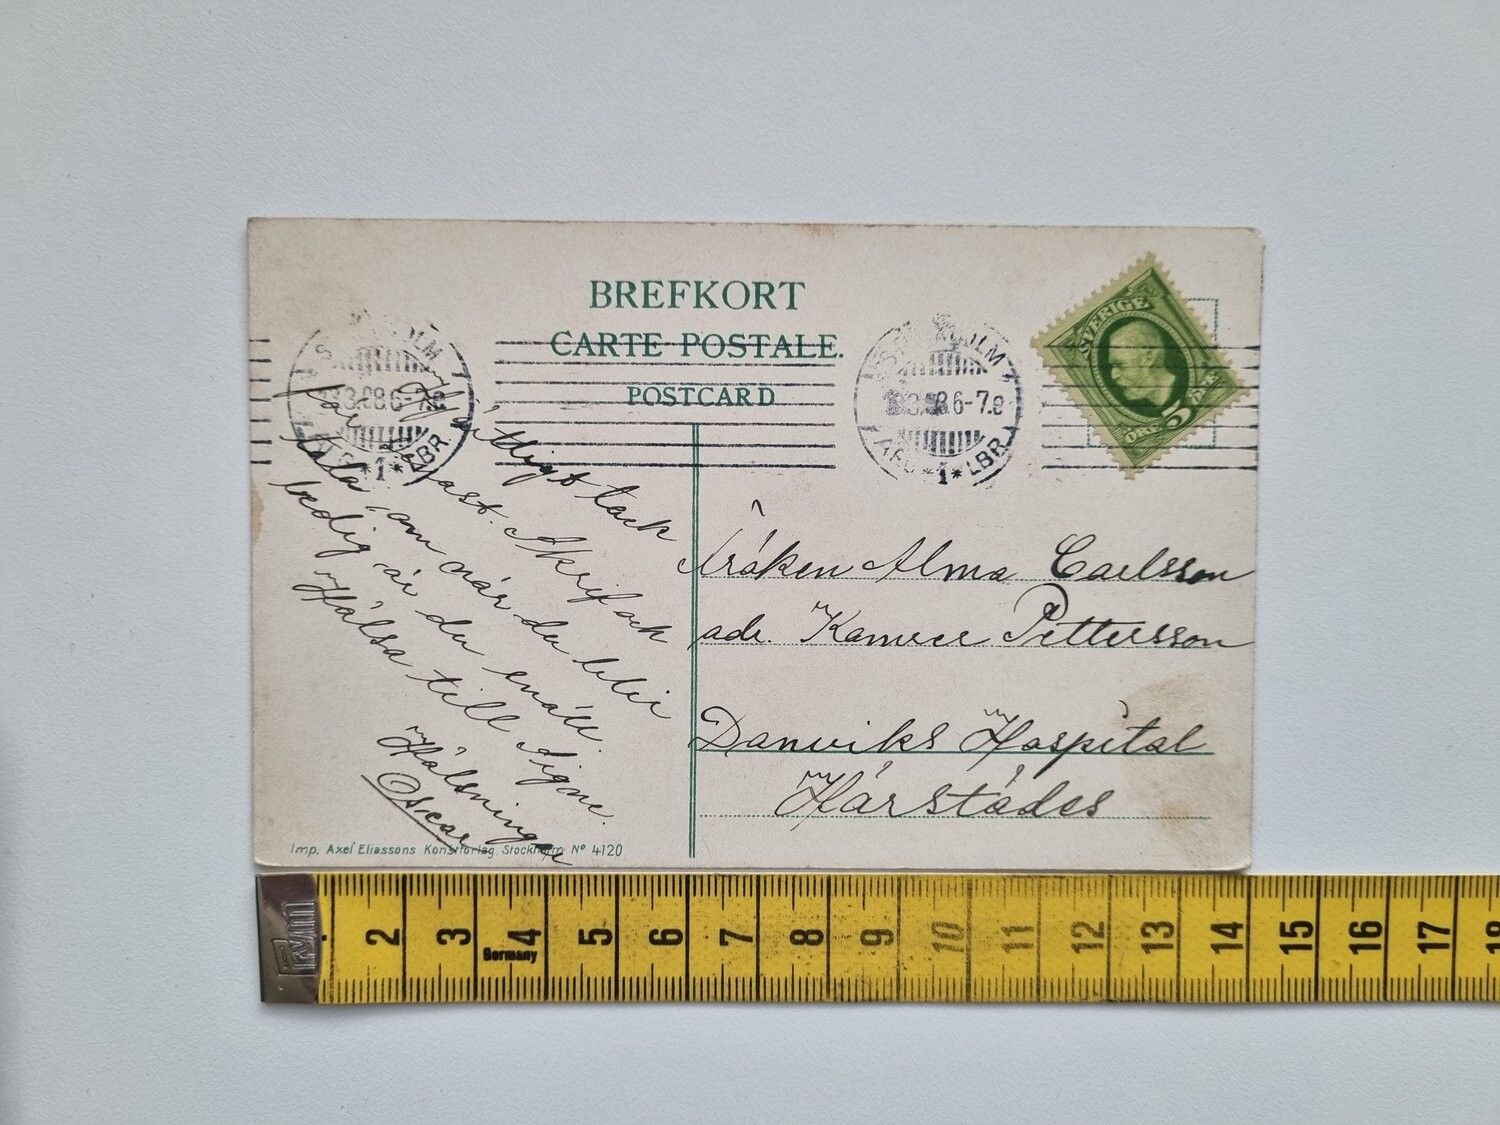 BREFKORT
CARTE POSTALE.
POSTCARD
STOCKHOLM
13.3.08.6-7.e
*1* LBR
STOCKHOLM
13.3.08.6-7.e
1* LBR
SVERIGE
5
ÖRE
Hjärtligt tack
för senast. Skrif och
tala om när du blir
ledig är du snäll.
Hälsa till Signe.
Hälsningar
Oscar
Fröken Alma Carlsson
adr. Kamrer Pettersson
Danviks Hospital
Härstädes
Imp. Axel Eliassons Konstförlag, Stockholm Nº 4120
PRYM
2 3 4 5 6 7 8 9 10 11 12 13 14 15 16 17 18
Germany